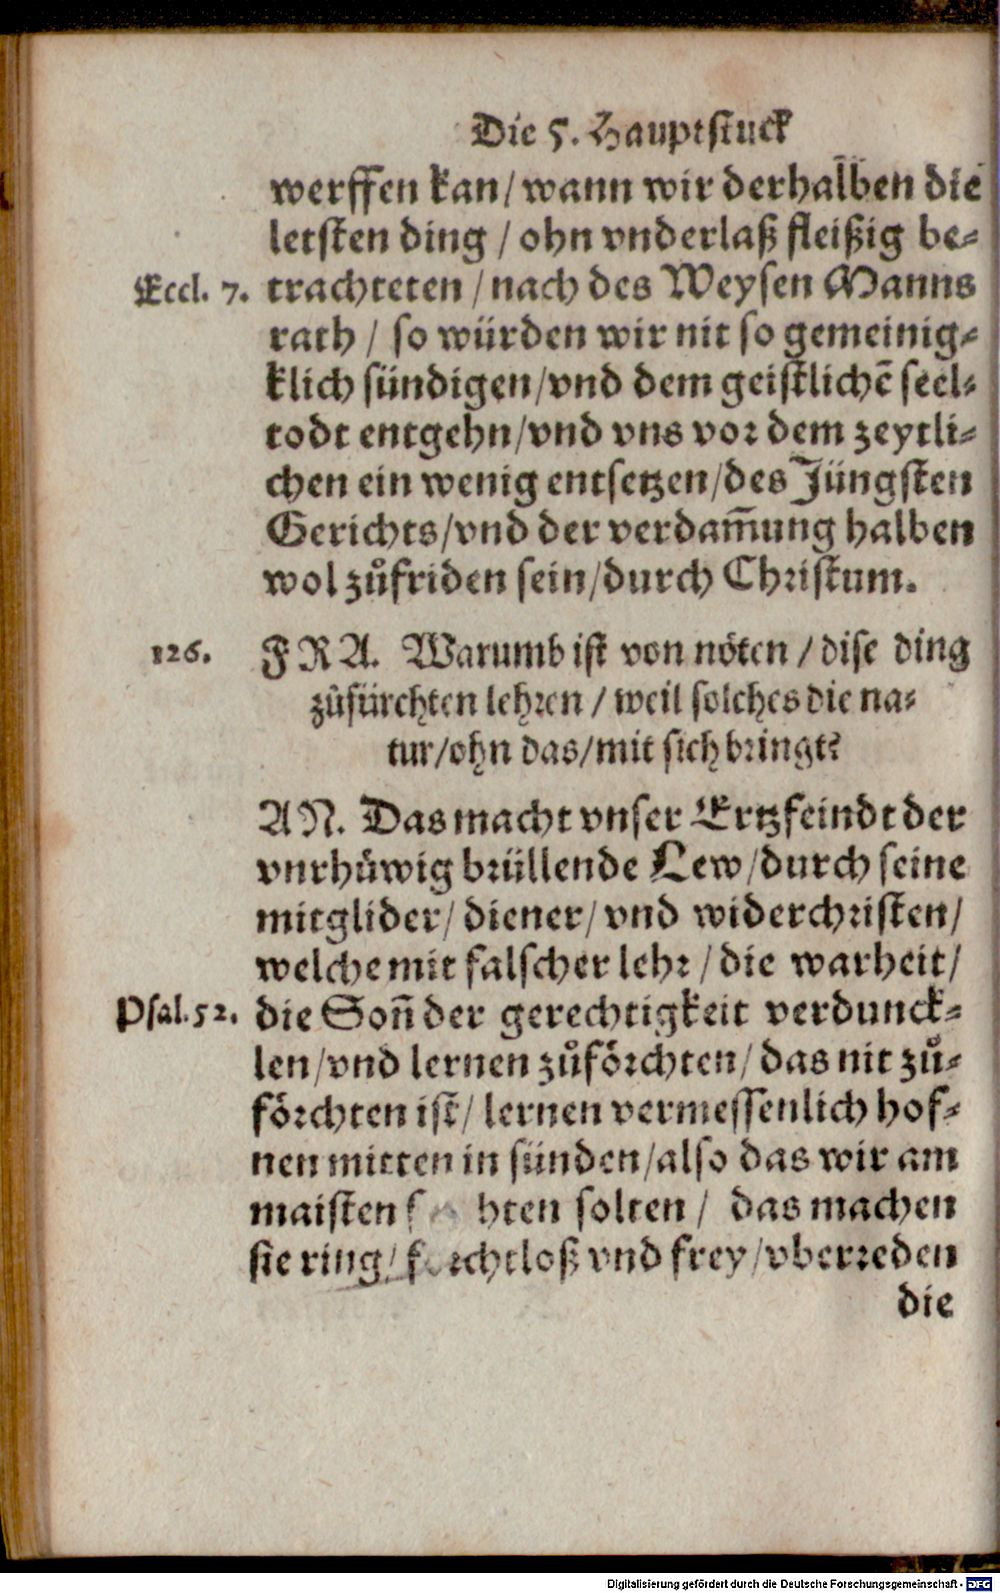 Die 5. Hauptstuck
werffen kan/ wann wir derhalben die
letsten ding / ohn vnderlaß fleißig be-
Eccl. 7. trachteten / nach des Weysen Manns
rath / so würden wir nit so gemeinig-
klich sündigen/vnd dem geistlichē seel-
todt entgehn/vnd vns vor dem zeytli-
chen ein wenig entsetzen/des Jüngsten
Gerichts/vnd der verdam̄ung halben
wol zůfriden sein/durch Christum.
126. FRA. Warumb ist von nöten / dise ding
zůfürchten lehren / weil solches die na-
tur/ohn das/mit sich bringt?
AN. Das macht vnser Ertzfeindt der
vnrhůwig brüllende Lew/durch seine
mitglider/ diener/ vnd widerchristen/
welche mit falscher lehr / die warheit/
Psal. 52. die Son̄ der gerechtigkeit verdunck-
len/vnd lernen zůförchten/ das nit zů-
förchten ist/ lernen vermessenlich hof-
nen mitten in sünden/also das wir am
maisten hten solten / das machen
sie ring/ forchtloß vnd frey/vberreden
die
Digitalisierung gefördert durch die Deutsche Forschungsgemeinschaft - DFG